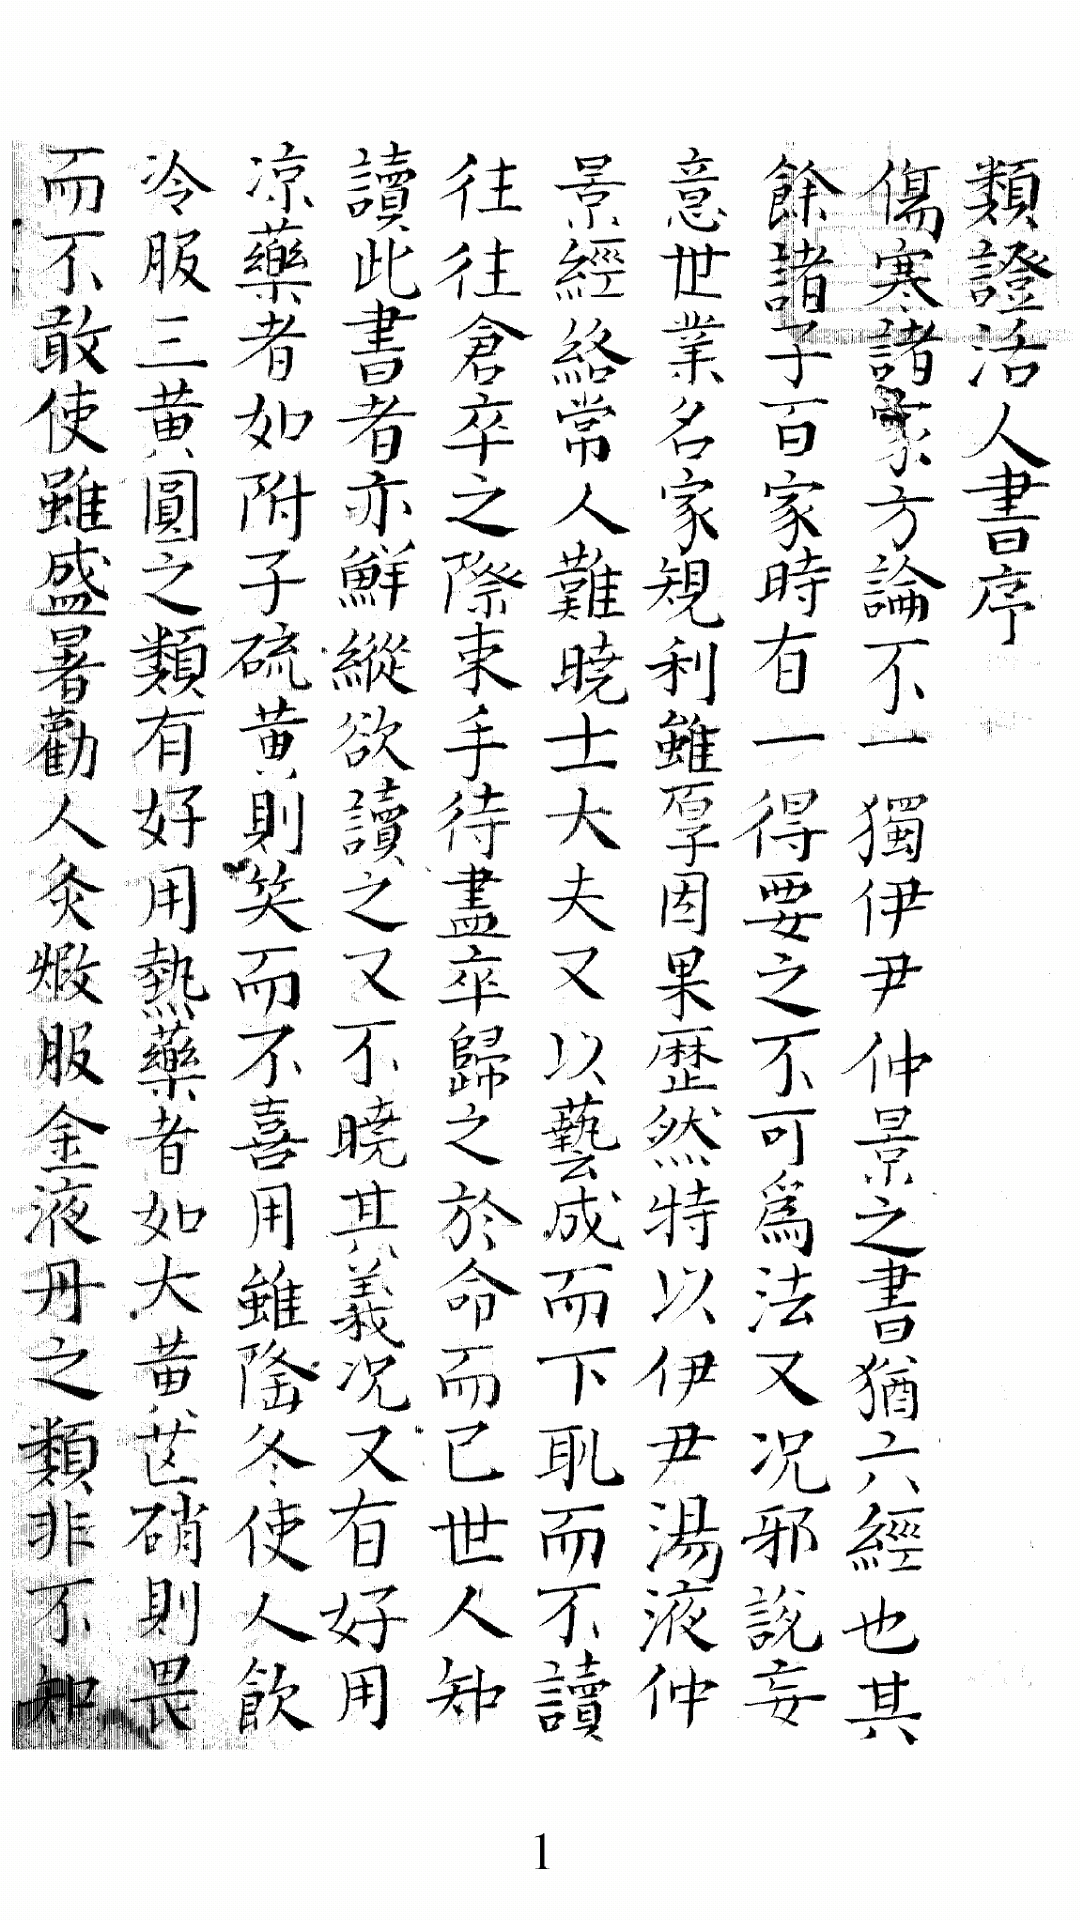 類證活人書序
傷寒諸家方論不一獨伊尹仲景之書猶六經也其
餘諸子百家時有一得要之不可為法又况邪說妄
意世業名家規利雖厚因果歷然特以伊尹湯液仲
景經絡常人難曉士大夫又以藝成而下恥而不讀
往往倉卒之際束手待盡卒歸之於命而已世人知
讀此書者亦鮮縱欲讀之又不曉其義况又有好用
凉藥者如附子硫黄則笑而不喜用雖隆冬使人飲
冷服三黄圓之類有好用熱藥者如大黄芒硝則畏
而不敢使雖盛暑勸人灸煅服金液丹之類非不知
1